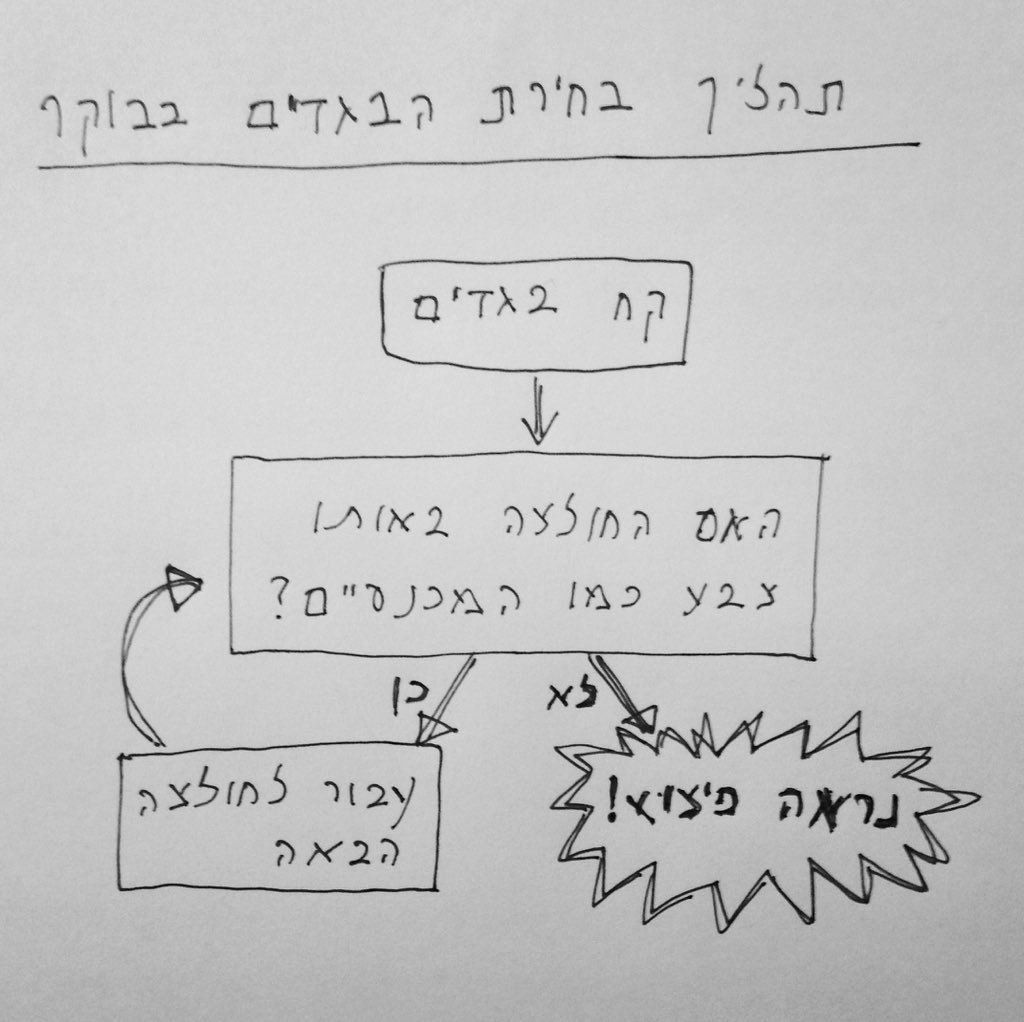 תהליך בחירת הבגדים בבוקר
קח בגדים
האם החולצה באותו
צבע כמו המכנסיים?
כן
לא
עבור לחולצה
הבאה
נראה פיצוץ!